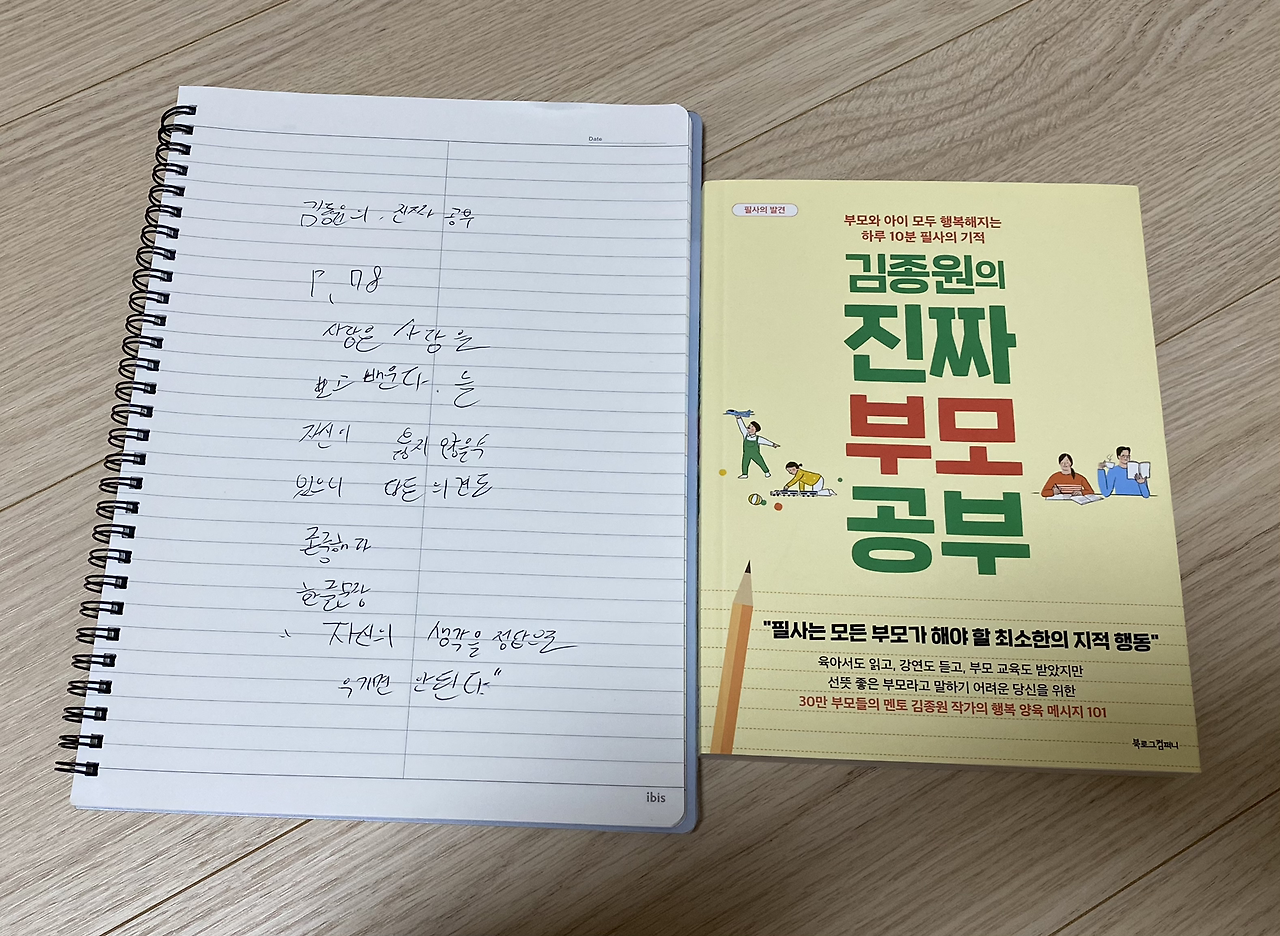 Date
김종원의. 진짜 공부
P. 78
사람은 사람을
보고 배운다. 늘
자신이 옳지 않을수
있으니 다른 의견도
존중하다
한글문장
" 자신의 생각을 정답으로
우기면 안된다"
ibis
필사의 발견
부모와 아이 모두 행복해지는
하루 10분 필사의 기적
김종원의
진짜
부모
공부
"필사는 모든 부모가 해야 할 최소한의 지적 행동"
육아서도 읽고, 강연도 듣고, 부모 교육도 받았지만
선뜻 좋은 부모라고 말하기 어려운 당신을 위한
30만 부모들의 멘토 김종원 작가의 행복 양육 메시지 101
북로그컴퍼니